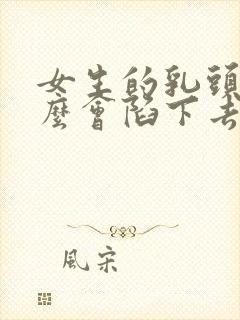 女生的乳頭
麼會陷下去
風宋